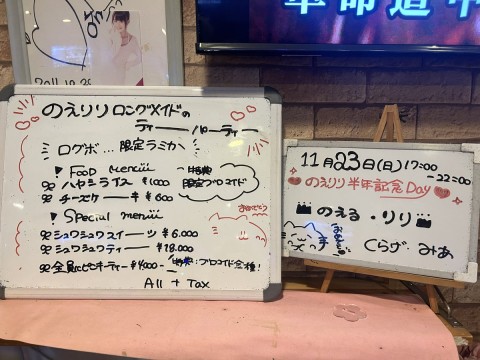 革命道中
2011.10.28
のえりりロングメイドの
ティーーパーティー
ログボ…限定ラミカ
▼Food menu
ハヤシライス ¥1000
特典 限定ブロマイド
チーズケーキ ¥600
▼Special menu
シュワシュワスイーツ ¥6.000
シュワシュワティー ¥18.000
全員にピンキーティー ¥4000-
特典:ブロマイド全種!
All + Tax
11月23日(日)17:00
-22:00
のえりり半年記念Day
のえる・りり
くらげ みあ